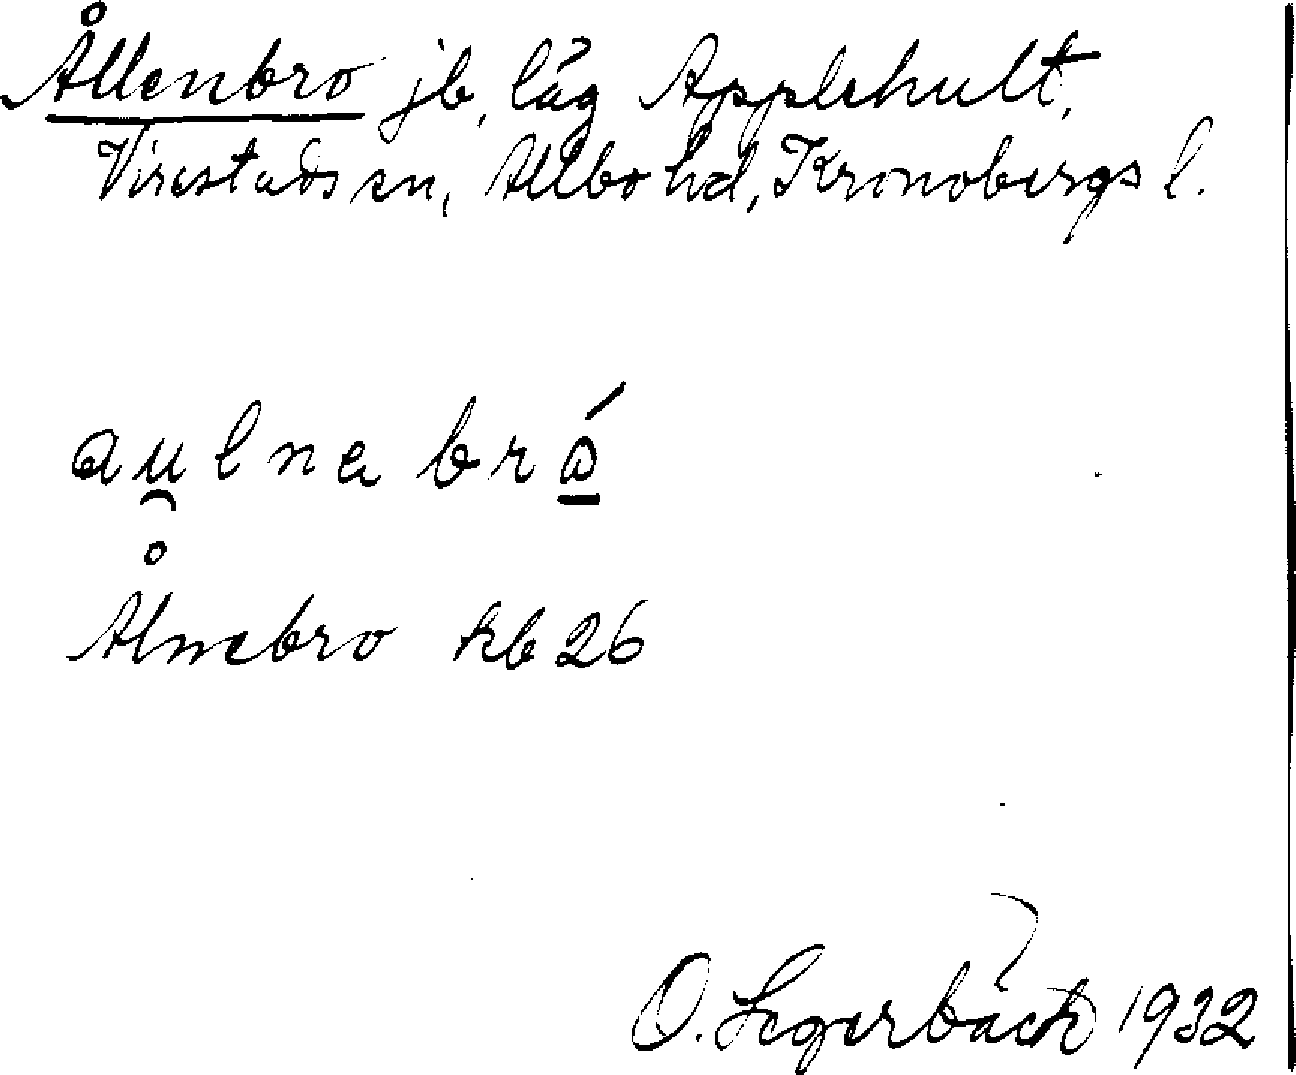 Ållenbro jb, läg Applehult,
Virestads sn, Allbo hd, Kronobergs l.
au̯lna brɷ́
Ålnebro kb 26
O. Segerbäck 1932